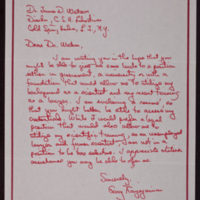 Dr. James D. Watson
Director, C.S.H. Laboratories
Cold Spring Harbor, L.I., N.Y.
Dear Dr. Watson,
I am writing you in the hope that you
might be able to give me some leads to a position
either in government, a university or with a
foundation that would allow me to utilize my
background as a scientist and my recent training
as a lawyer. I am enclosing a resume so
that you might better be able to assess my
credentials. While I would prefer a legal
position that would also allow me to
utilize my scientific training, as an unemployed
lawyer and former scientist, I am not in a
position to be too selective. I appreciate whatever
assistance you may be able to offer me.
Sincerely,